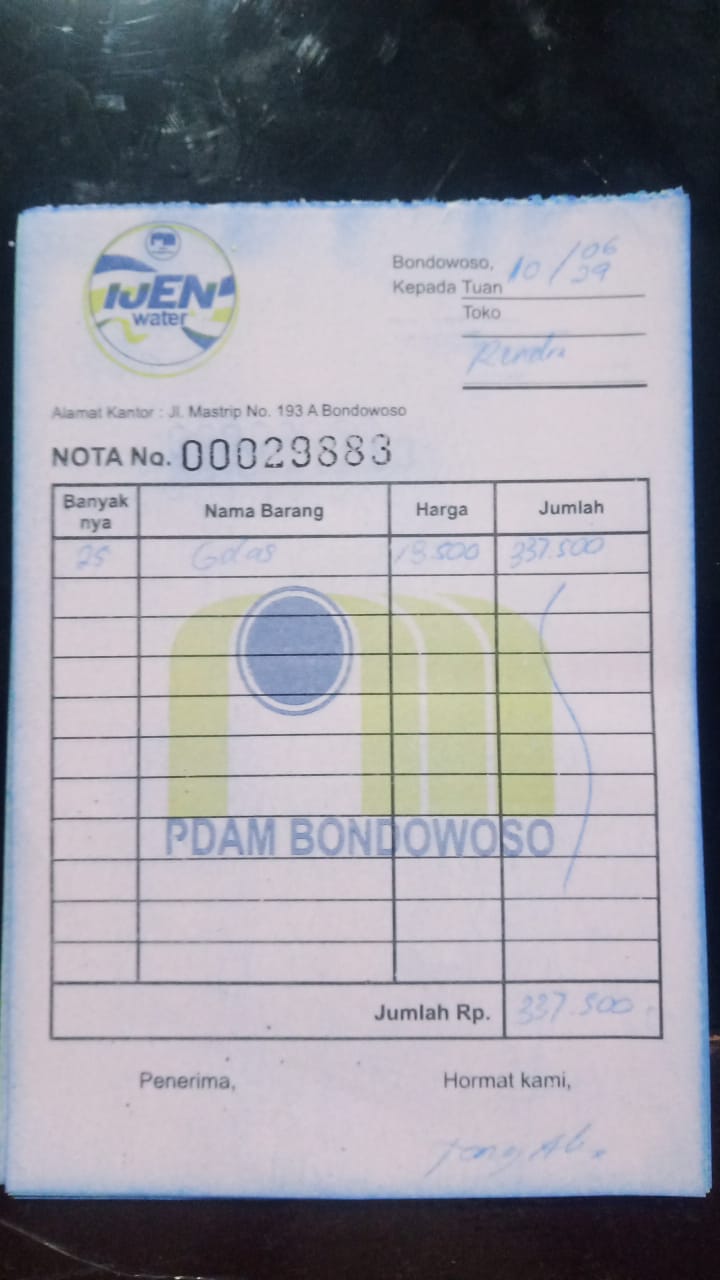 IJEN
water
Bondowoso, 10/06
29
Kepada Tuan
Toko
Rendra
Alamat Kantor : Jl. Mastrip No. 193 A Bondowoso
NOTA No. 00029883
Banyak nya Nama Barang Harga Jumlah
25 Gelas 13.500 337.500
PDAM BONDOWOSO
Jumlah Rp. 337.500
Penerima, Hormat kami,